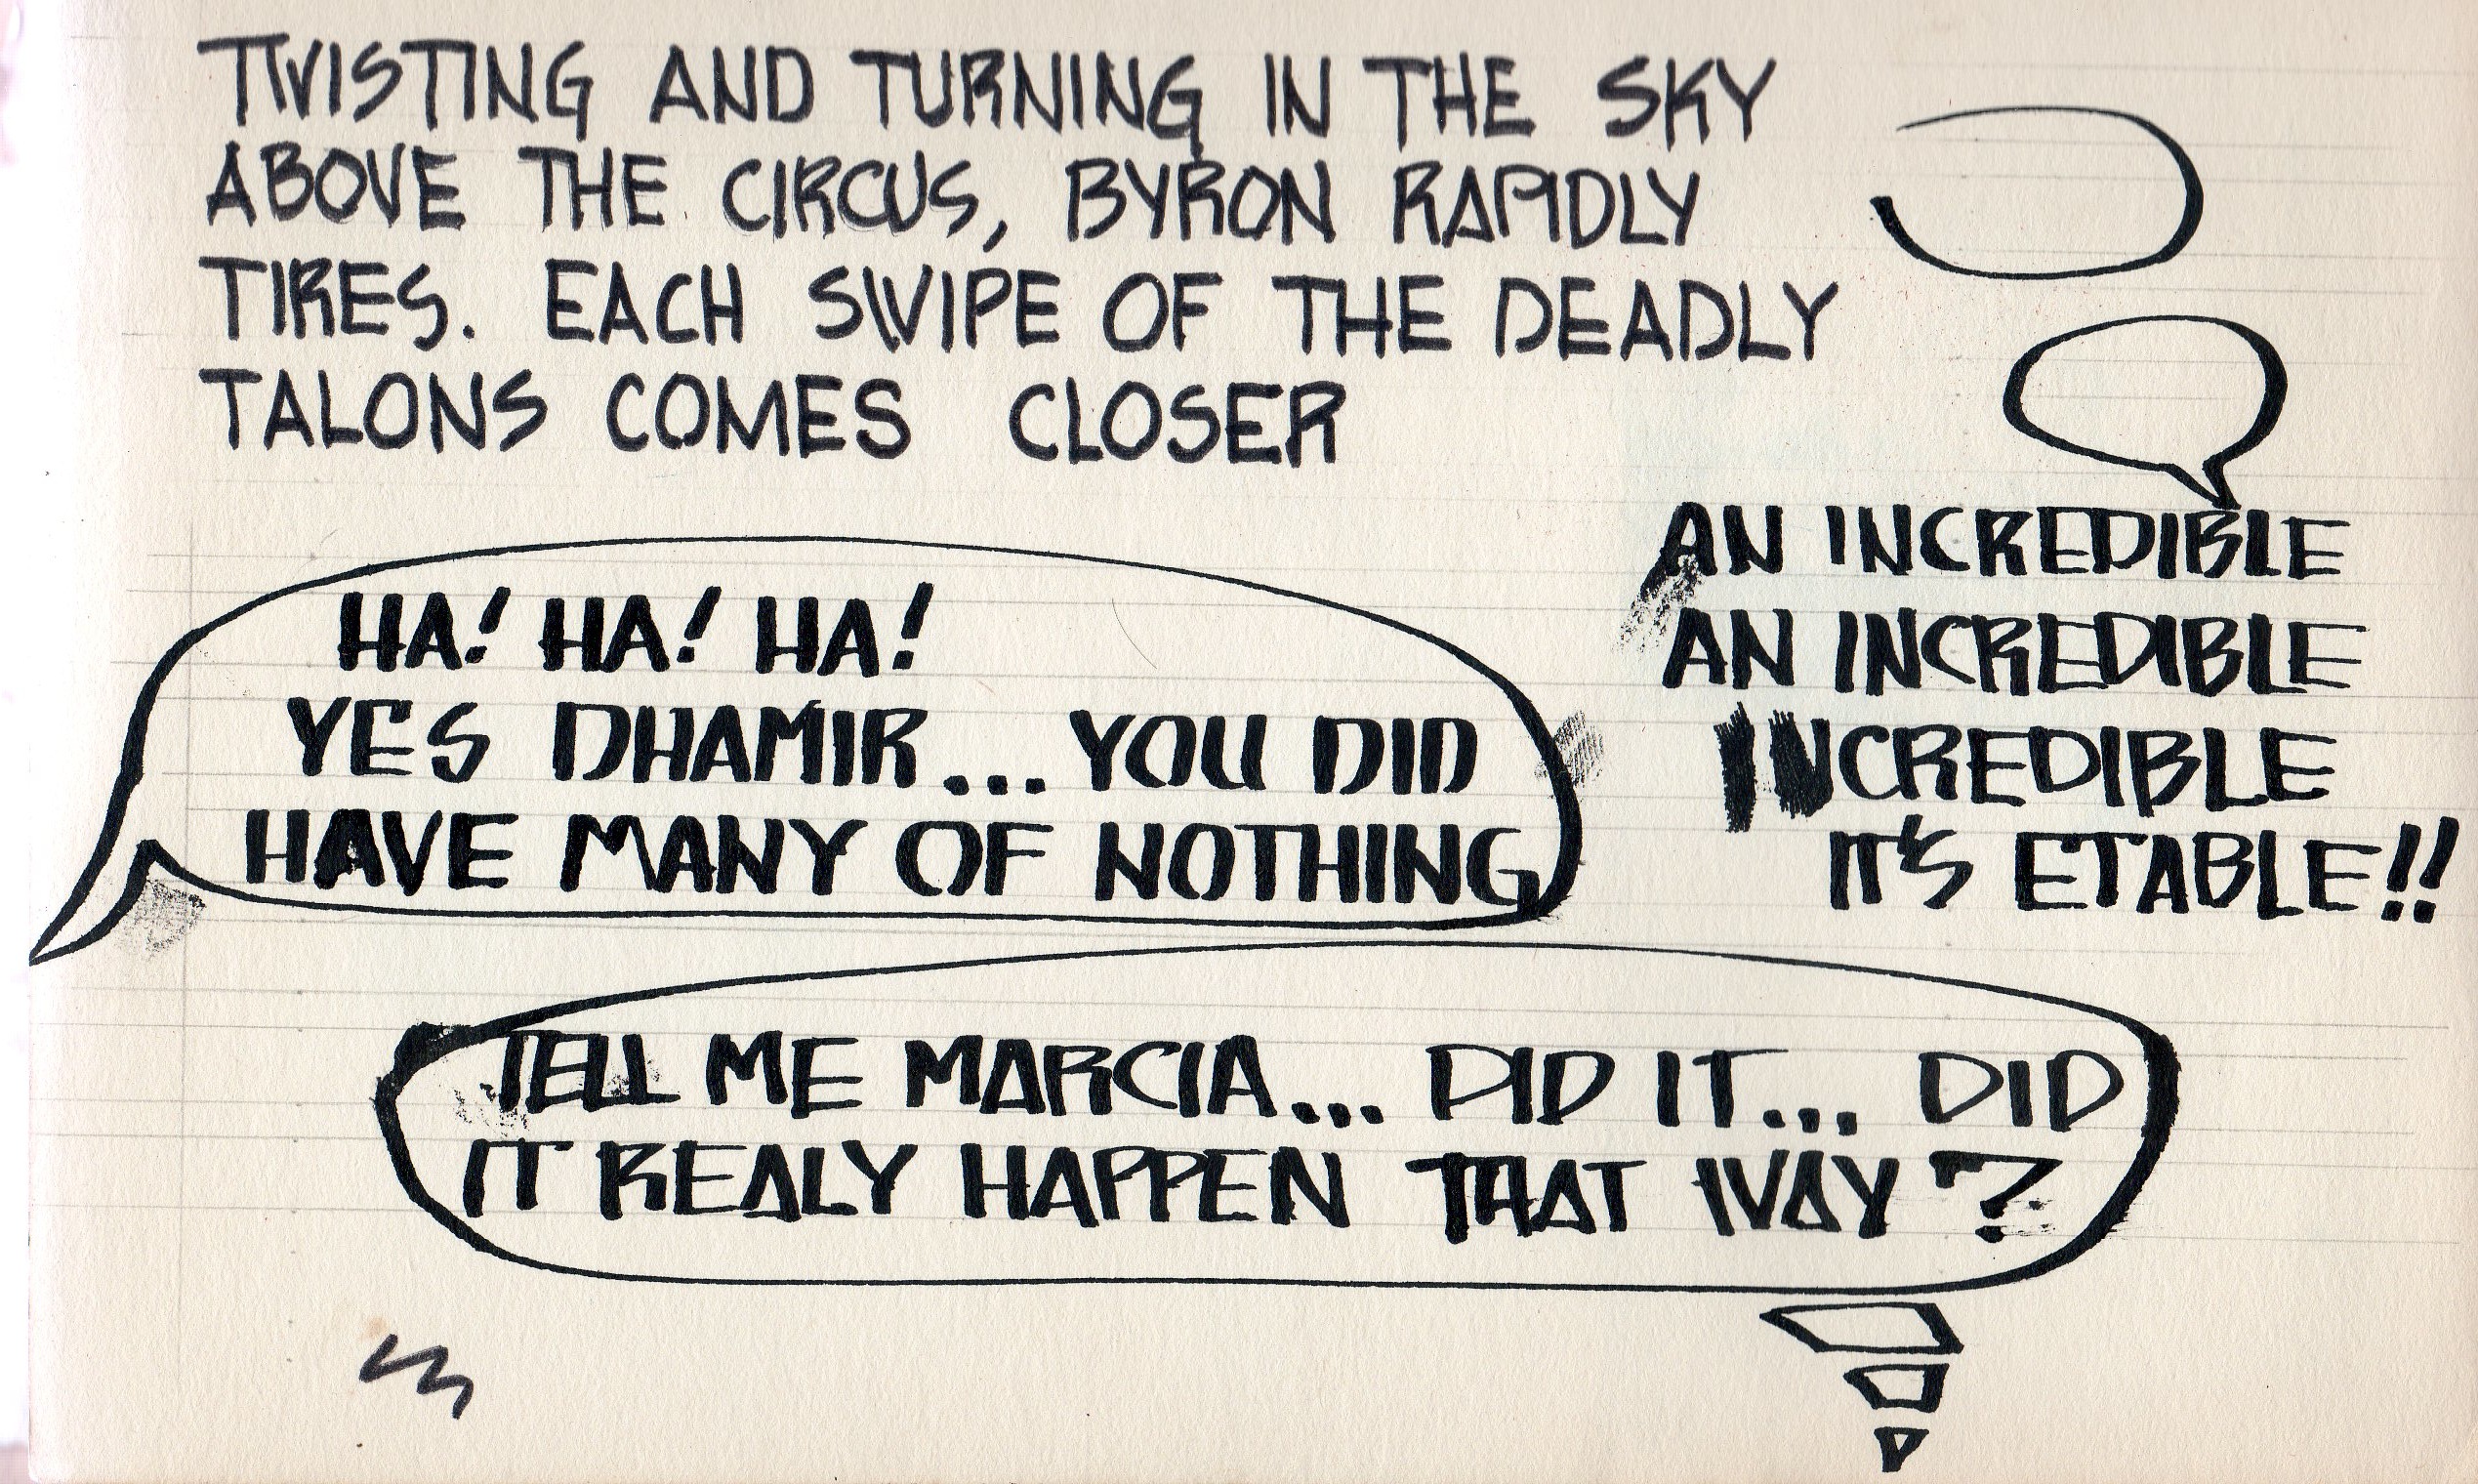 TWISTING AND TURNING IN THE SKY
ABOVE THE CIRCUS, BYRON RAPIDLY
TIRES. EACH SWIPE OF THE DEADLY
TALONS COMES CLOSER
HA! HA! HA!
YES DHAMIR... YOU DID
HAVE MANY OF NOTHING
AN INCREDIBLE
AN INCREDIBLE
INCREDIBLE
IT'S ETABLE!!
TELL ME MARCIA... DID IT... DID
IT REALY HAPPEN THAT WAY?